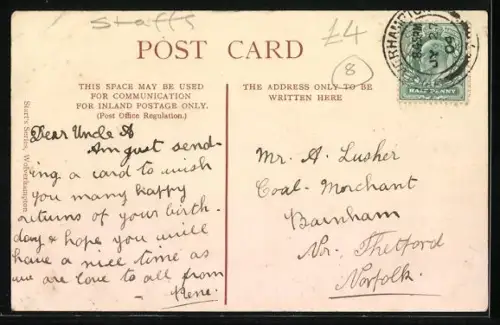 Staffs
£4
8
POST CARD
THIS SPACE MAY BE USED
FOR COMMUNICATION
FOR INLAND POSTAGE ONLY.
(Post Office Regulation.)
THE ADDRESS ONLY TO BE
WRITTEN HERE
HALF PENNY
Series, Wolverhampton
Dear Uncle A
Am just send-
ing a card to wish
you many happy
returns of your birth-
day & hope you will
have a nice time as
we are love to all from
Rene.
Mr. A. Lusher
Coal-Merchant
Barnham
Nr. Thetford
Norfolk.